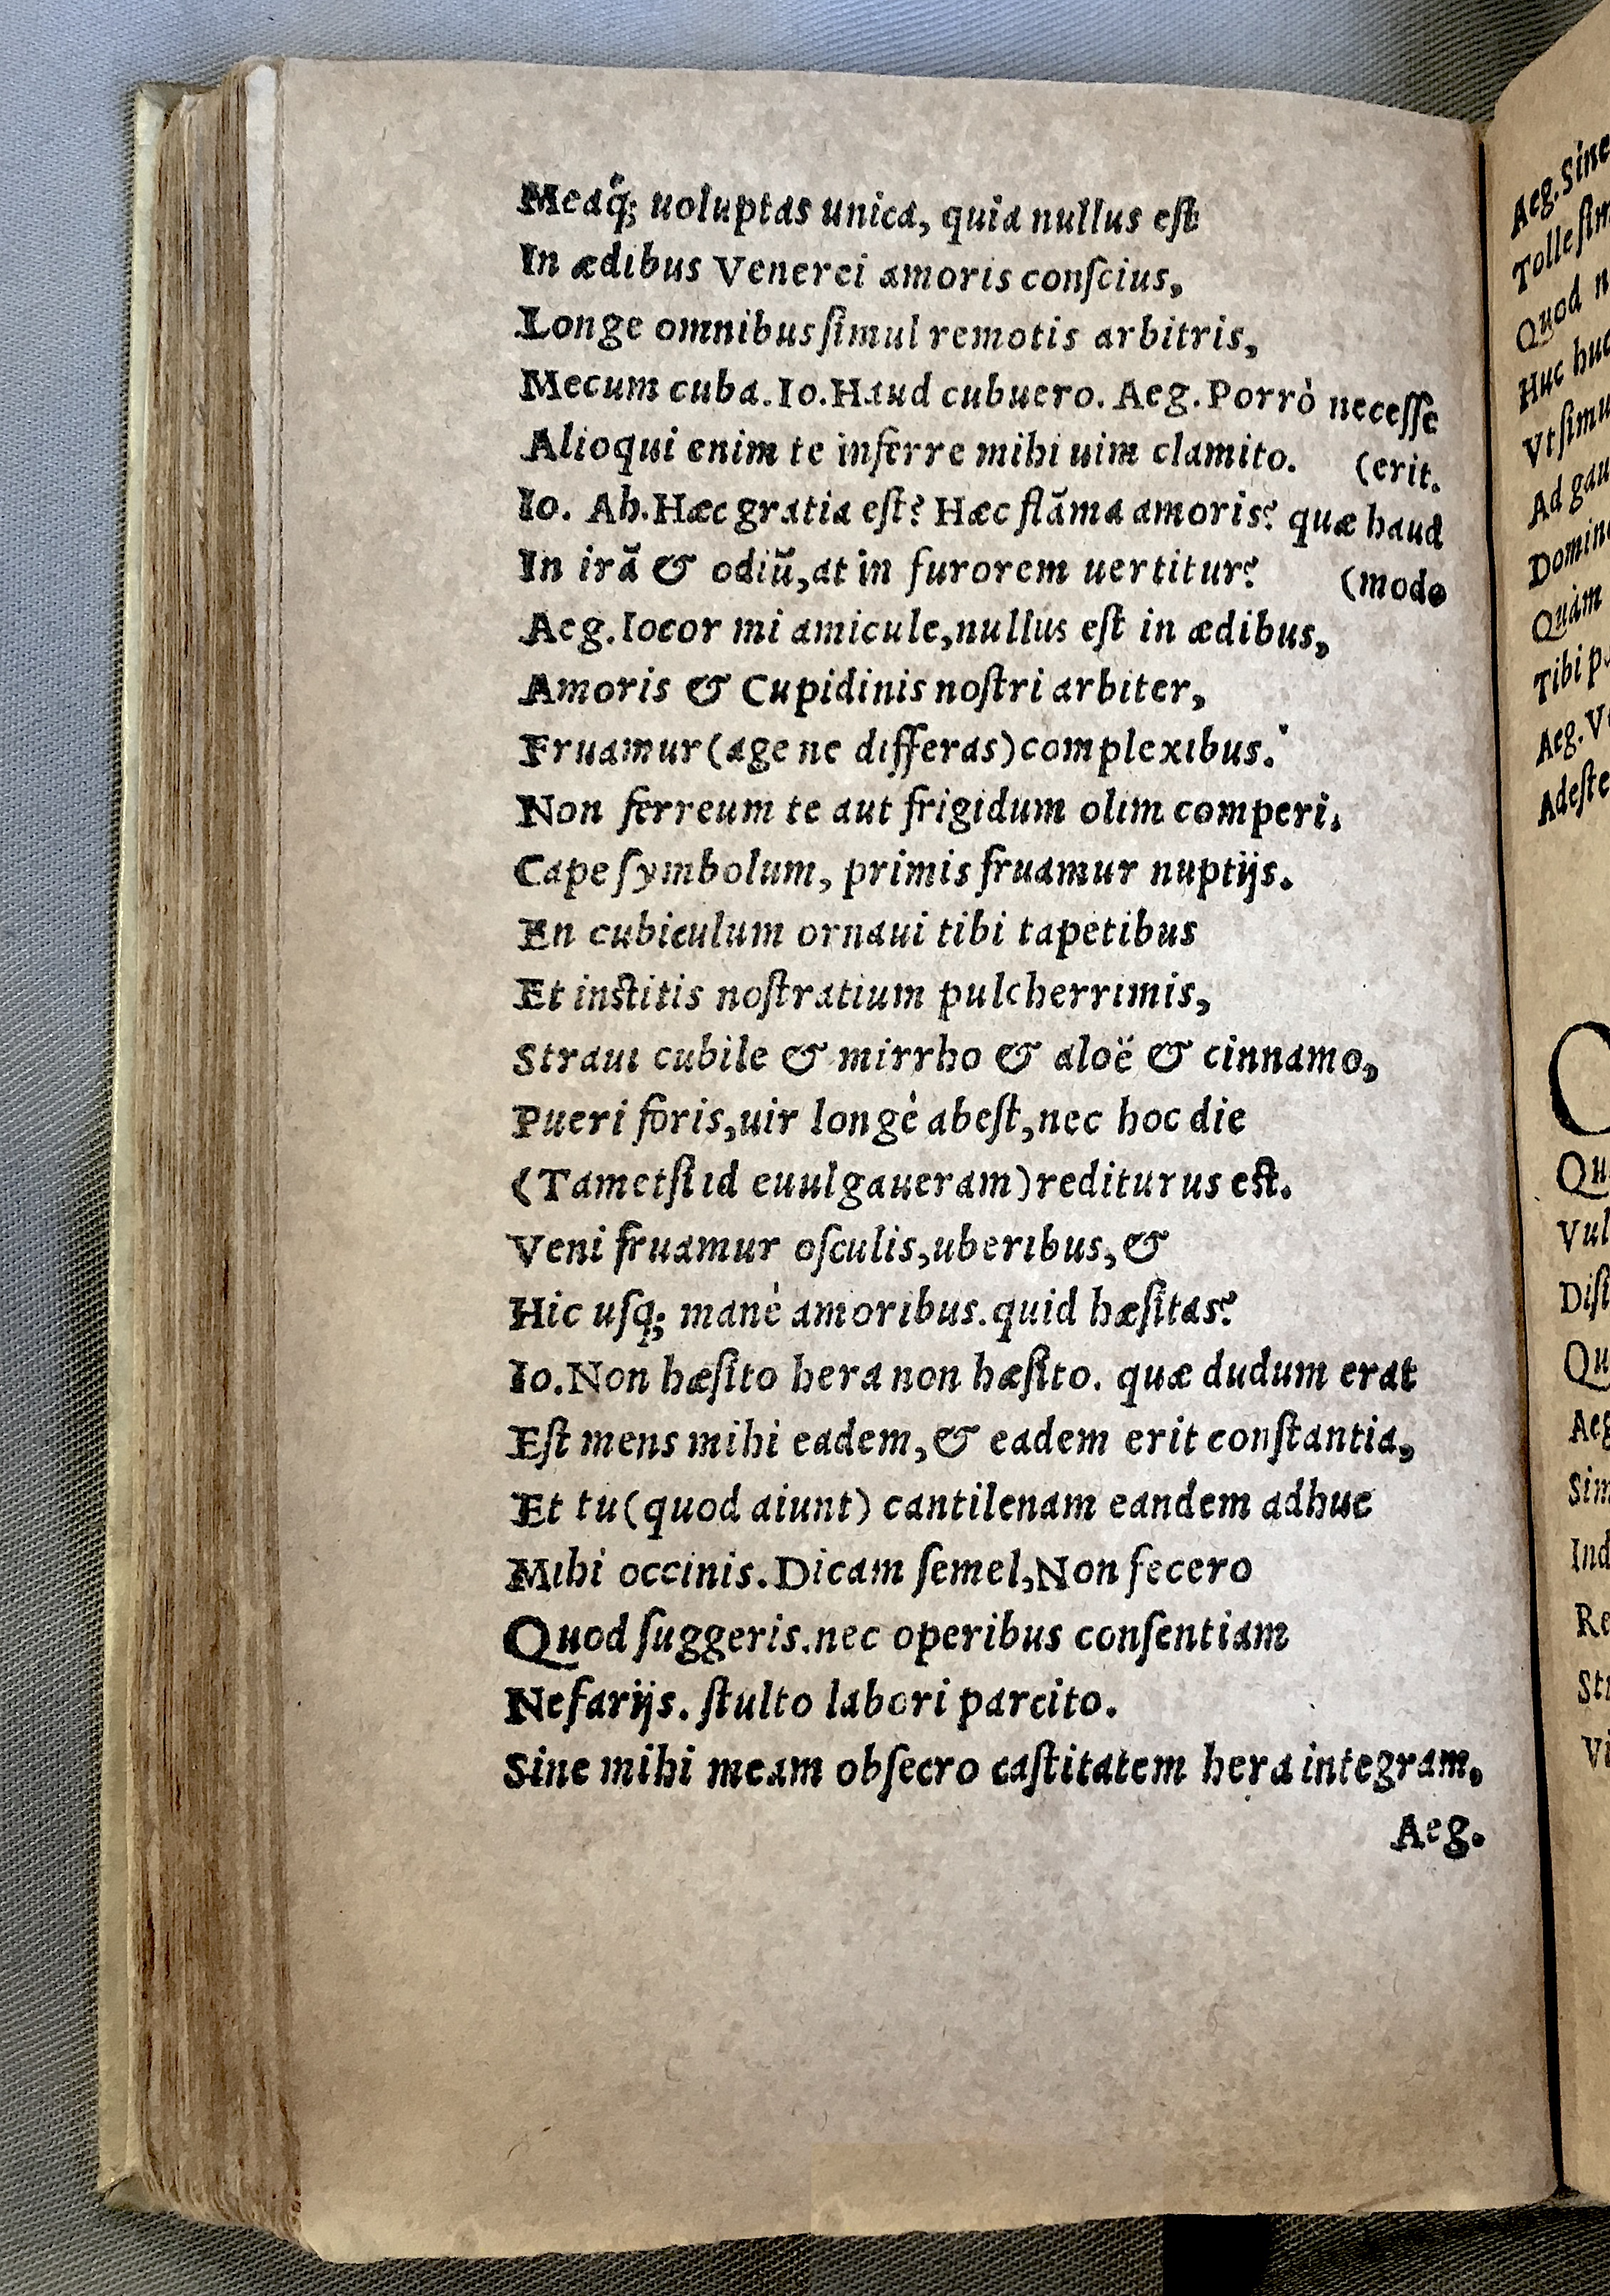 Meaq́; uoluptas unica, quia nullus eſt
In ædibus Venerei amoris conſcius,
Longe omnibus ſimul remotis arbitris,
Mecum cuba. Io. Haud cubuero. Aeg. Porrò necesſe
Alioqui enim te inferre mihi uim clamito. (erit.
Io. Ah. Hæc gratia eſt? Hæc flāma amoris? quæ haud
In irā & odiū, at in furorem uertitur? (modo
Aeg. Iocor mi amicule, nullus eſt in ædibus,
Amoris & Cupidinis noſtri arbiter,
Fruamur (age ne differas) complexibus.
Non ferreum te aut frigidum olim comperi,
Cape ſymbolum, primis fruamur nuptijs.
En cubiculum ornaui tibi tapetibus
Et inſtitis noſtratium pulcherrimis,
Straui cubile & mirrho & aloë & cinnamo,
Pueri foris, uir longè abeſt, nec hoc die
(Tametſi id euulgaueram) rediturus eſt.
Veni fruamur oſculis, uberibus, &
Hic uſq; manè amoribus. quid hæſitas?
Io. Non hæſito hera non hæſito. quæ dudum erat
Eſt mens mihi eadem, & eadem erit conſtantia,
Et tu (quod aiunt) cantilenam eandem adhuc
Mihi occinis. Dicam ſemel, Non fecero
Quod ſuggeris. nec operibus conſentiam
Nefarijs. ſtulto labori parcito.
Sine mihi meam obſecro caſtitatem hera integram.
Aeg.
Aeg. Sine
Quod
Huc
Ad
Quàm
Tibi
Aeg.
Adeſte